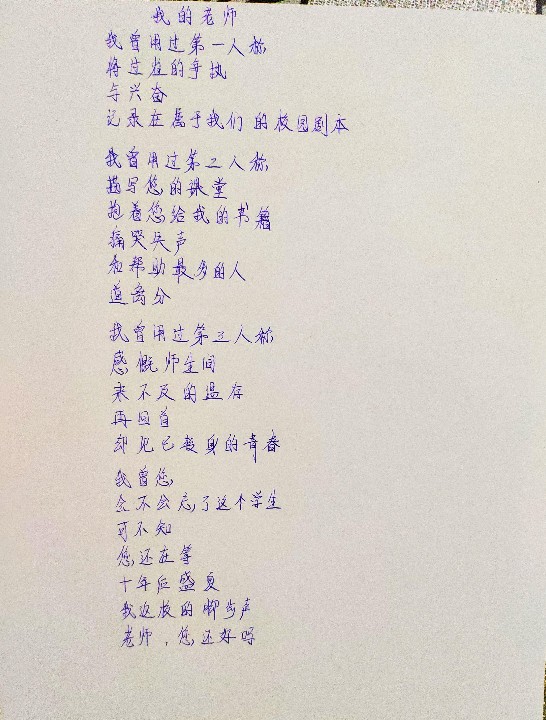 我的老师
我曾用过第一人称
将过程的争执
与兴奋
记录在属于我们的校园剧本
我曾用过第二人称
描写您的课堂
抱着您给我的书籍
痛哭失声
和帮助最多的人
道离分
我曾用过第三人称
感慨师生间
来不及的温存
再回首
却见已转身的青春
我曾您
会不会忘了这个学生
可不知
您还在等
十年后盛夏
我返校的脚步声
老师，您还好吗